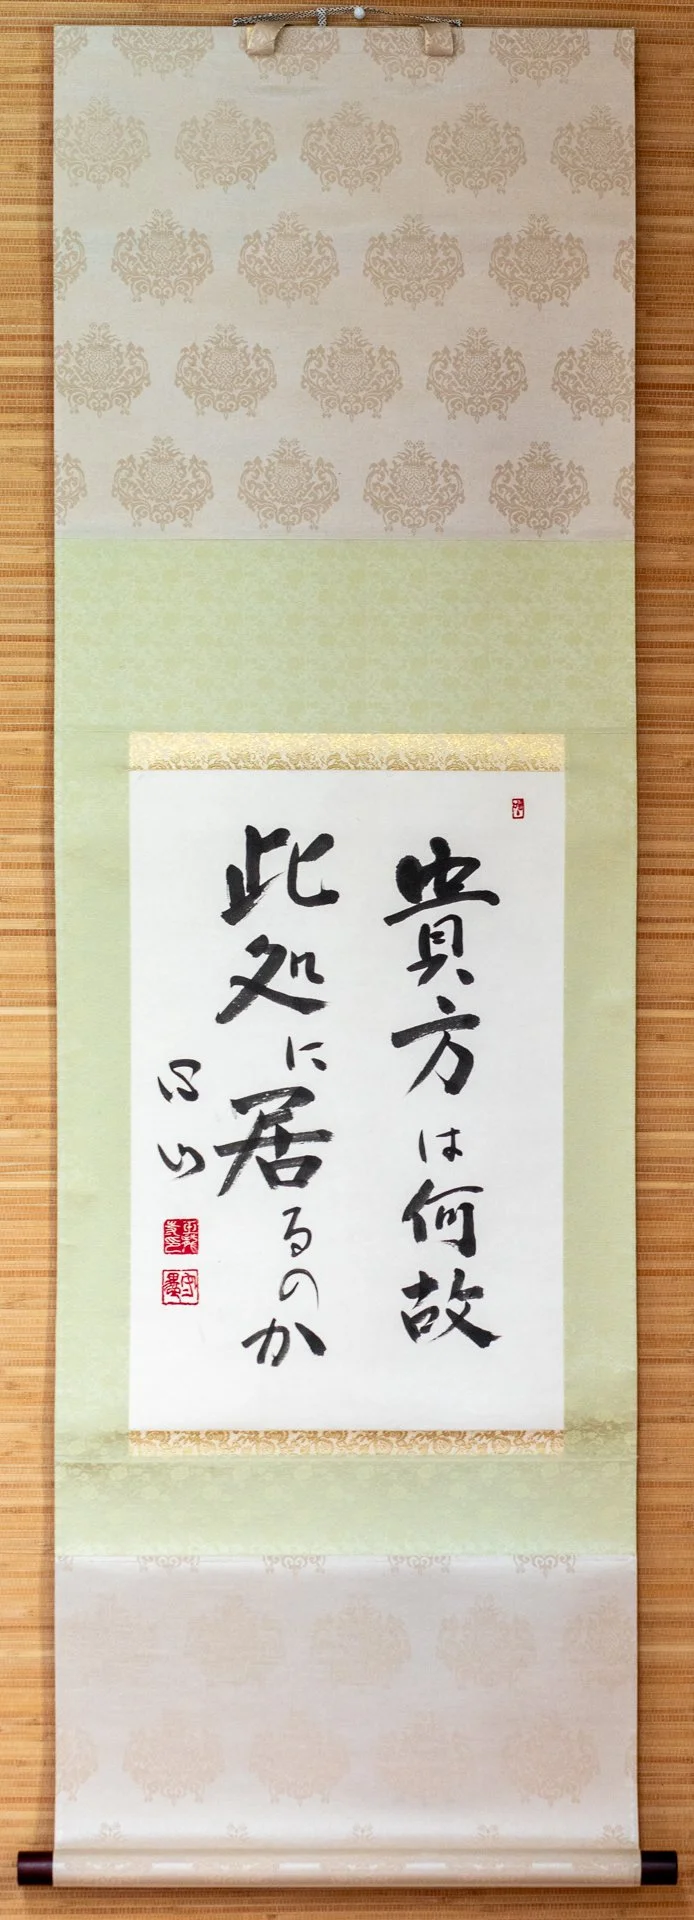 貴方は何故
此処に居るのか